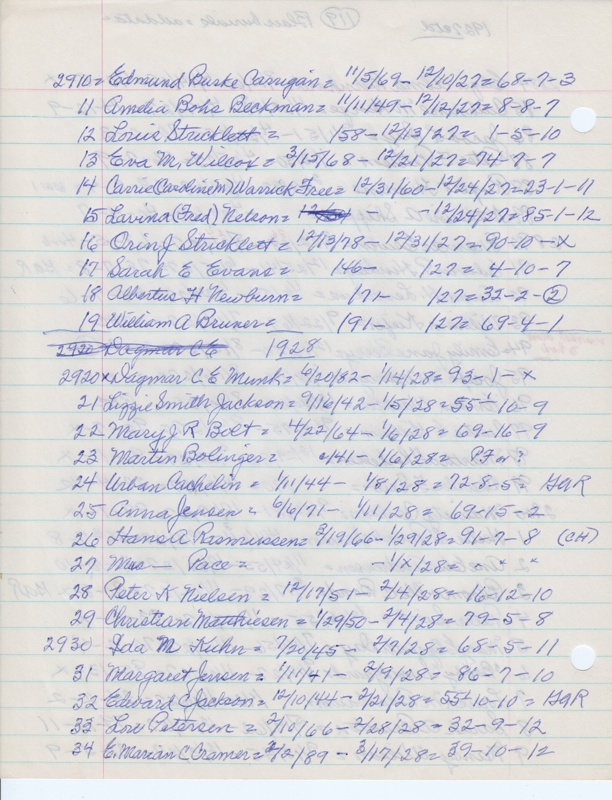 2910 = Edmund Burke Carrigan = 11/5/69 - 12/10/27 = 68-7-3
11 Amelia Bohs Beckman = 11/11/49 - 12/12/27 = 8-8-7
12 Louis Stricklett = /58 - 12/13/27 = 1-5-10
13 Eva M. Wilcox = 3/15/68 - 12/21/27 = 74-7-7
14 Carrie (Caroline M) Warrick Free = 12/31/60 - 12/24/27 = 23-1-11
15 Lavina (Fred) Nelson = - - 12/24/27 = 85-1-12
16 Orin J Stricklett = 12/13/78 - 12/31/27 = 90-10-x
17 Sarah E Evans = /46 - /27 = 4-10-7
18 Albertus H Newburn = /71 - /27 = 32-2-2
19 William A Bruner = /91 - /27 = 69-4-1
2920 Dagmar C E 1928
2920 x Dagmar C. E Munk = 6/20/82 - 1/14/28 = 93-1-x
21 Lizzie Smith Jackson = 9/16/42 - 1/5/28 = 55½-10-9
22 Mary J R Bolt = 4/22/64 - 1/6/28 = 69-16-9
23 Martin Bolinger = /41 - 1/6/28 = PF or ?
24 Urban Cachelin = 1/11/44 - 1/8/28 = 72-8-5 = GAR
25 Anna Jensen = 6/6/71 - 1/11/28 = 69-15-2
26 Hans A Rasmussen = 3/19/66 - 1/29/28 = 91-7-8 (CH)
27 Mrs — Pace = - 1/x/28 = " "
28 Peter K Nielsen = 12/17/51 - 2/4/28 = 16-12-10
29 Christian Matthiesen = 1/29/50 - 2/4/28 = 79-5-8
2930 Ida M Kuhn = 7/20/45 - 2/7/28 = 68-5-11
31 Margaret Jensen = 1/11/41 - 2/9/28 = 86-7-10
32 Edward Jackson = 12/10/44 - 2/21/28 = 55½-10-10 = GAR
33 Petersen = 2/10/66 - 2/28/28 = 32-9-12
34 E. Marian C Cramer = 2/89 - 3/17/28 = 39-10-12